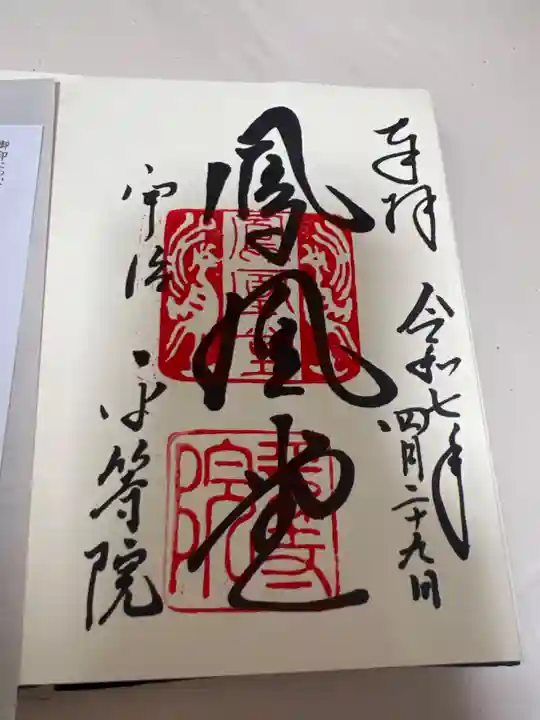 奉拝 令和七年
四月二十九日
鳳凰堂
鳳凰堂
平等院
宇治 平等院